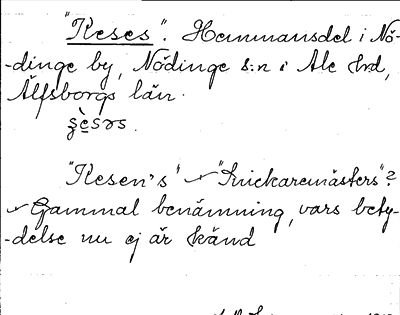 "Keses". Hemmansdel i Nö-
-dinge by, Nödinge s:n i Ale hrd,
Älfsborgs län.
"Kesen's" "Snickaremästers"?
Gammal benämning, vars bety-
-delse nu ej är känd